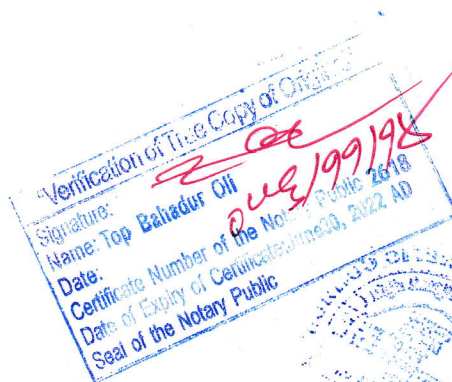 Verification of True Copy of Original
Signature:
Name: Top Bahadur Oli
Date:
Certificate Number of the Notary Public 2618
Date of Expiry of Certificate: June 30, 2022 AD
Seal of the Notary Public